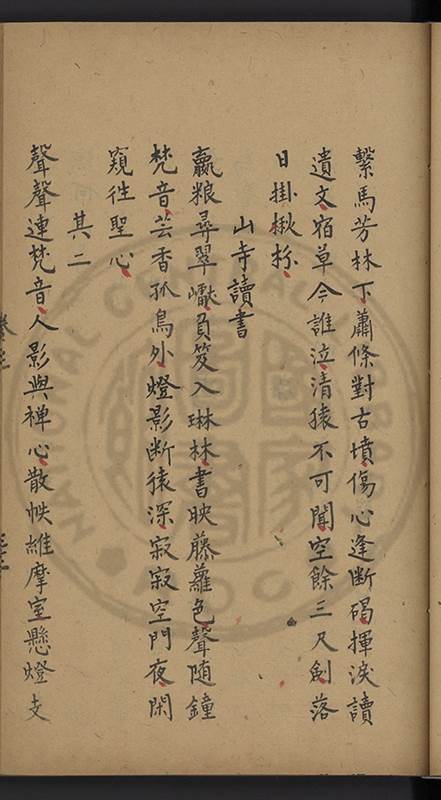 繫馬芳林下蕭條對古墳傷心逢斷碣揮淚讀
遺文宿草今誰泣清猿不可聞空餘三尺劍落
日掛楸枌
山寺讀書
贏粮尋翠巘負笈入琳林書映藤蘿色聲随鐘
梵音芸香孤鳥外燈影断猿深寂寂空門夜閑
窺徃聖心
其二
聲聲連梵音人影與禅心散帙維摩室懸燈支